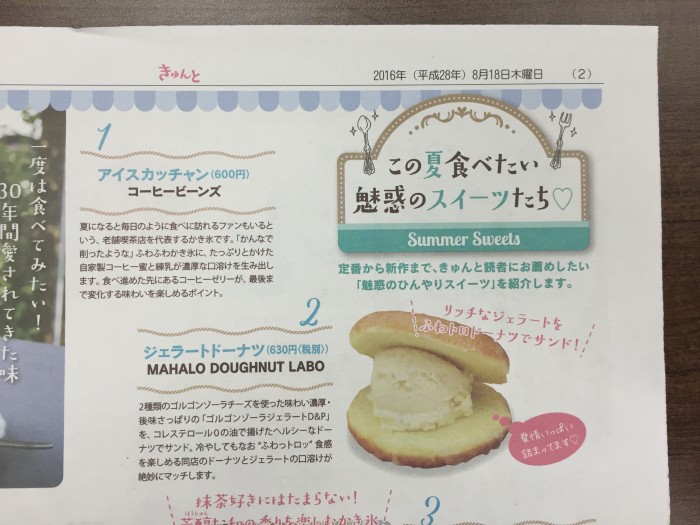 きゅんと
2016年（平成28年）8月18日木曜日
（2）
一度は食べてみたい！
30年間愛されてきた味
1
アイスカッチャン（600円）
コーヒービーンズ
夏になると毎日のように食べに訪れるファンもいると
いう、老舗喫茶店を代表するかき氷です。「かんなで
削ったような」ふわふわかき氷に、たっぷりとかけた
自家製コーヒー蜜と練乳が濃厚な口溶けを生み出し
ます。食べ進めた先にあるコーヒーゼリーが、最後ま
で変化する味わいを楽しめるポイント。
この夏食べたい
魅惑のスイーツたち♡
Summer Sweets
定番から新作まで、きゅんと読者にお薦めしたい
「魅惑のひんやりスイーツ」を紹介します。
2
ジェラートドーナツ（630円〈税別〉）
MAHALO DOUGHNUT LABO
2種類のゴルゴンゾーラチーズを使った味わい濃厚・
後味さっぱりの「ゴルゴンゾーラジェラートD&P」
を、コレステロール0の油で揚げたヘルシーなドー
ナツでサンド。冷やしてもなお“ふわっトロッ”食感
を楽しめる同店のドーナツとジェラートの口溶けが
絶妙にマッチします。
リッチなジェラートを
ふわトロドーナツでサンド！
愛情いっぱい
詰まってます♡
抹茶好きにはたまらない！
3